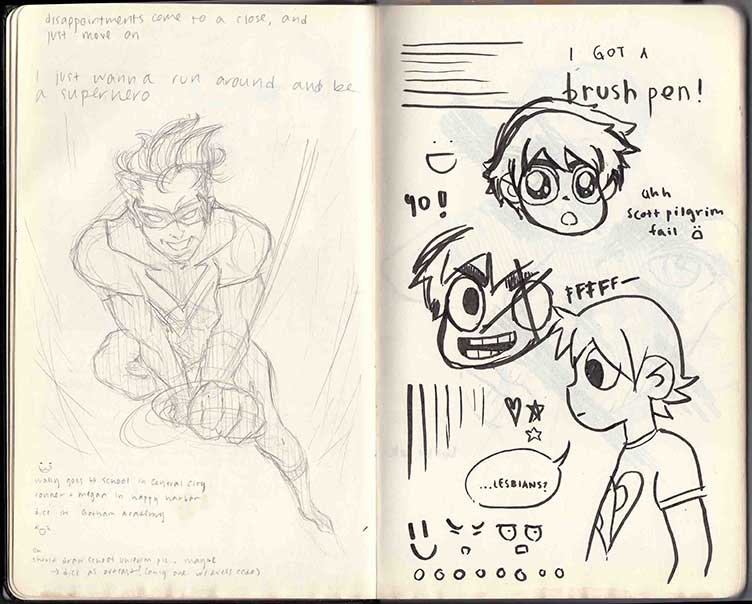 disappointments come to a close, and
just move on
I just wanna run around and be
a superhero
wally goes to school in Central City
conner + megan in happy harbor
dick in Gotham Academy
should draw school uniform pic... maybe
→ dick as outcast! (only one w/
I GOT A
brush pen!
YO!
ahh
scott pilgrim
fail
FFFFF—
...LESBIANS?